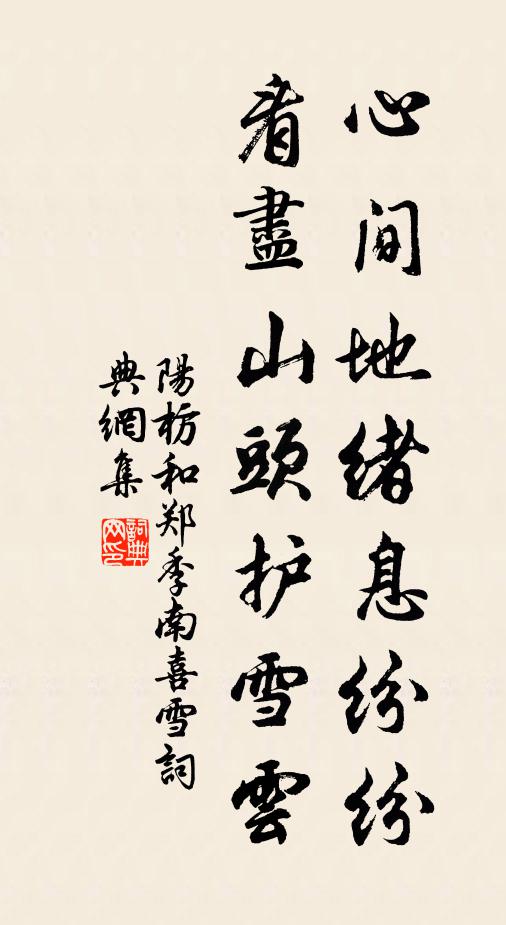 心间地绪息纷纷
看盡山頭护雪雲
陽枋和郑季南喜雪詞
典網集
詞典网印